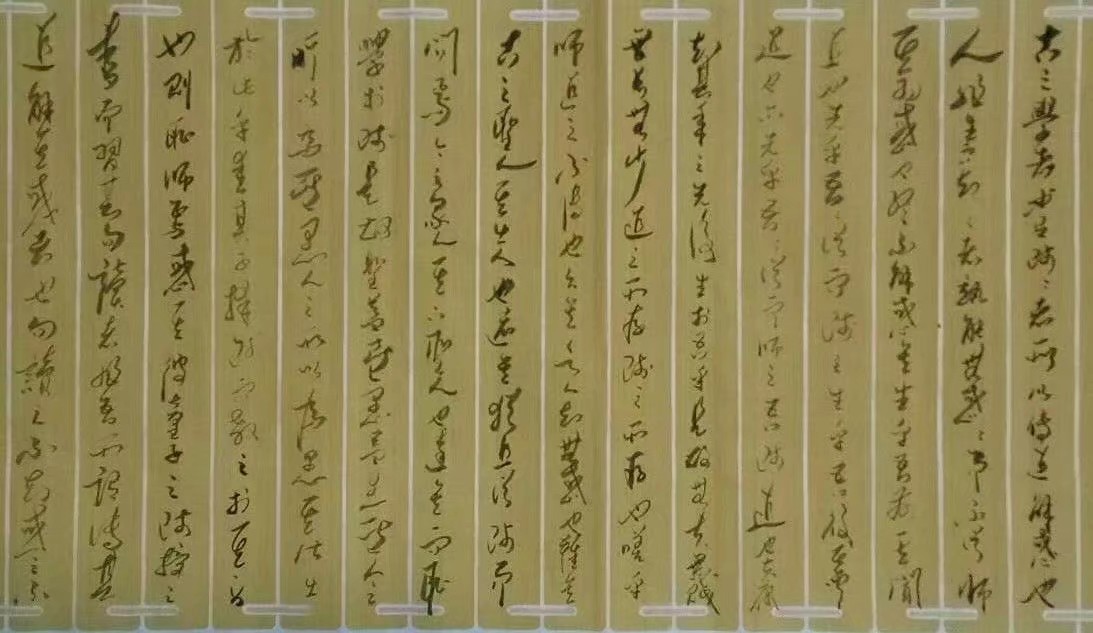 古之學者必有師〻者所以傳道解惑也
人非生而知〻者孰能無惑〻而不從師
其為惑也終不解矣生乎吾前其聞
道也先乎吾〻從而師之生乎吾後其聞
道也亦先乎吾〻從而師之吾師道也夫庸
知其年之先後生於吾乎是故無貴無賤
無長無少道之所存師之所存也嗟乎
師道之不傳也久矣欲人之無惑也難矣
古之聖人其出人也遠矣猶且從師而
問焉今之眾人其下聖人也遠矣而恥
學於師是故聖益聖愚益愚聖人之
所以為聖愚人之所以為愚其皆出
於此乎愛其子擇師而教之於其身
也則恥師焉惑矣彼童子之師授之
書而習其句讀者非吾所謂傳其
道解其惑者也句讀之不知惑之不